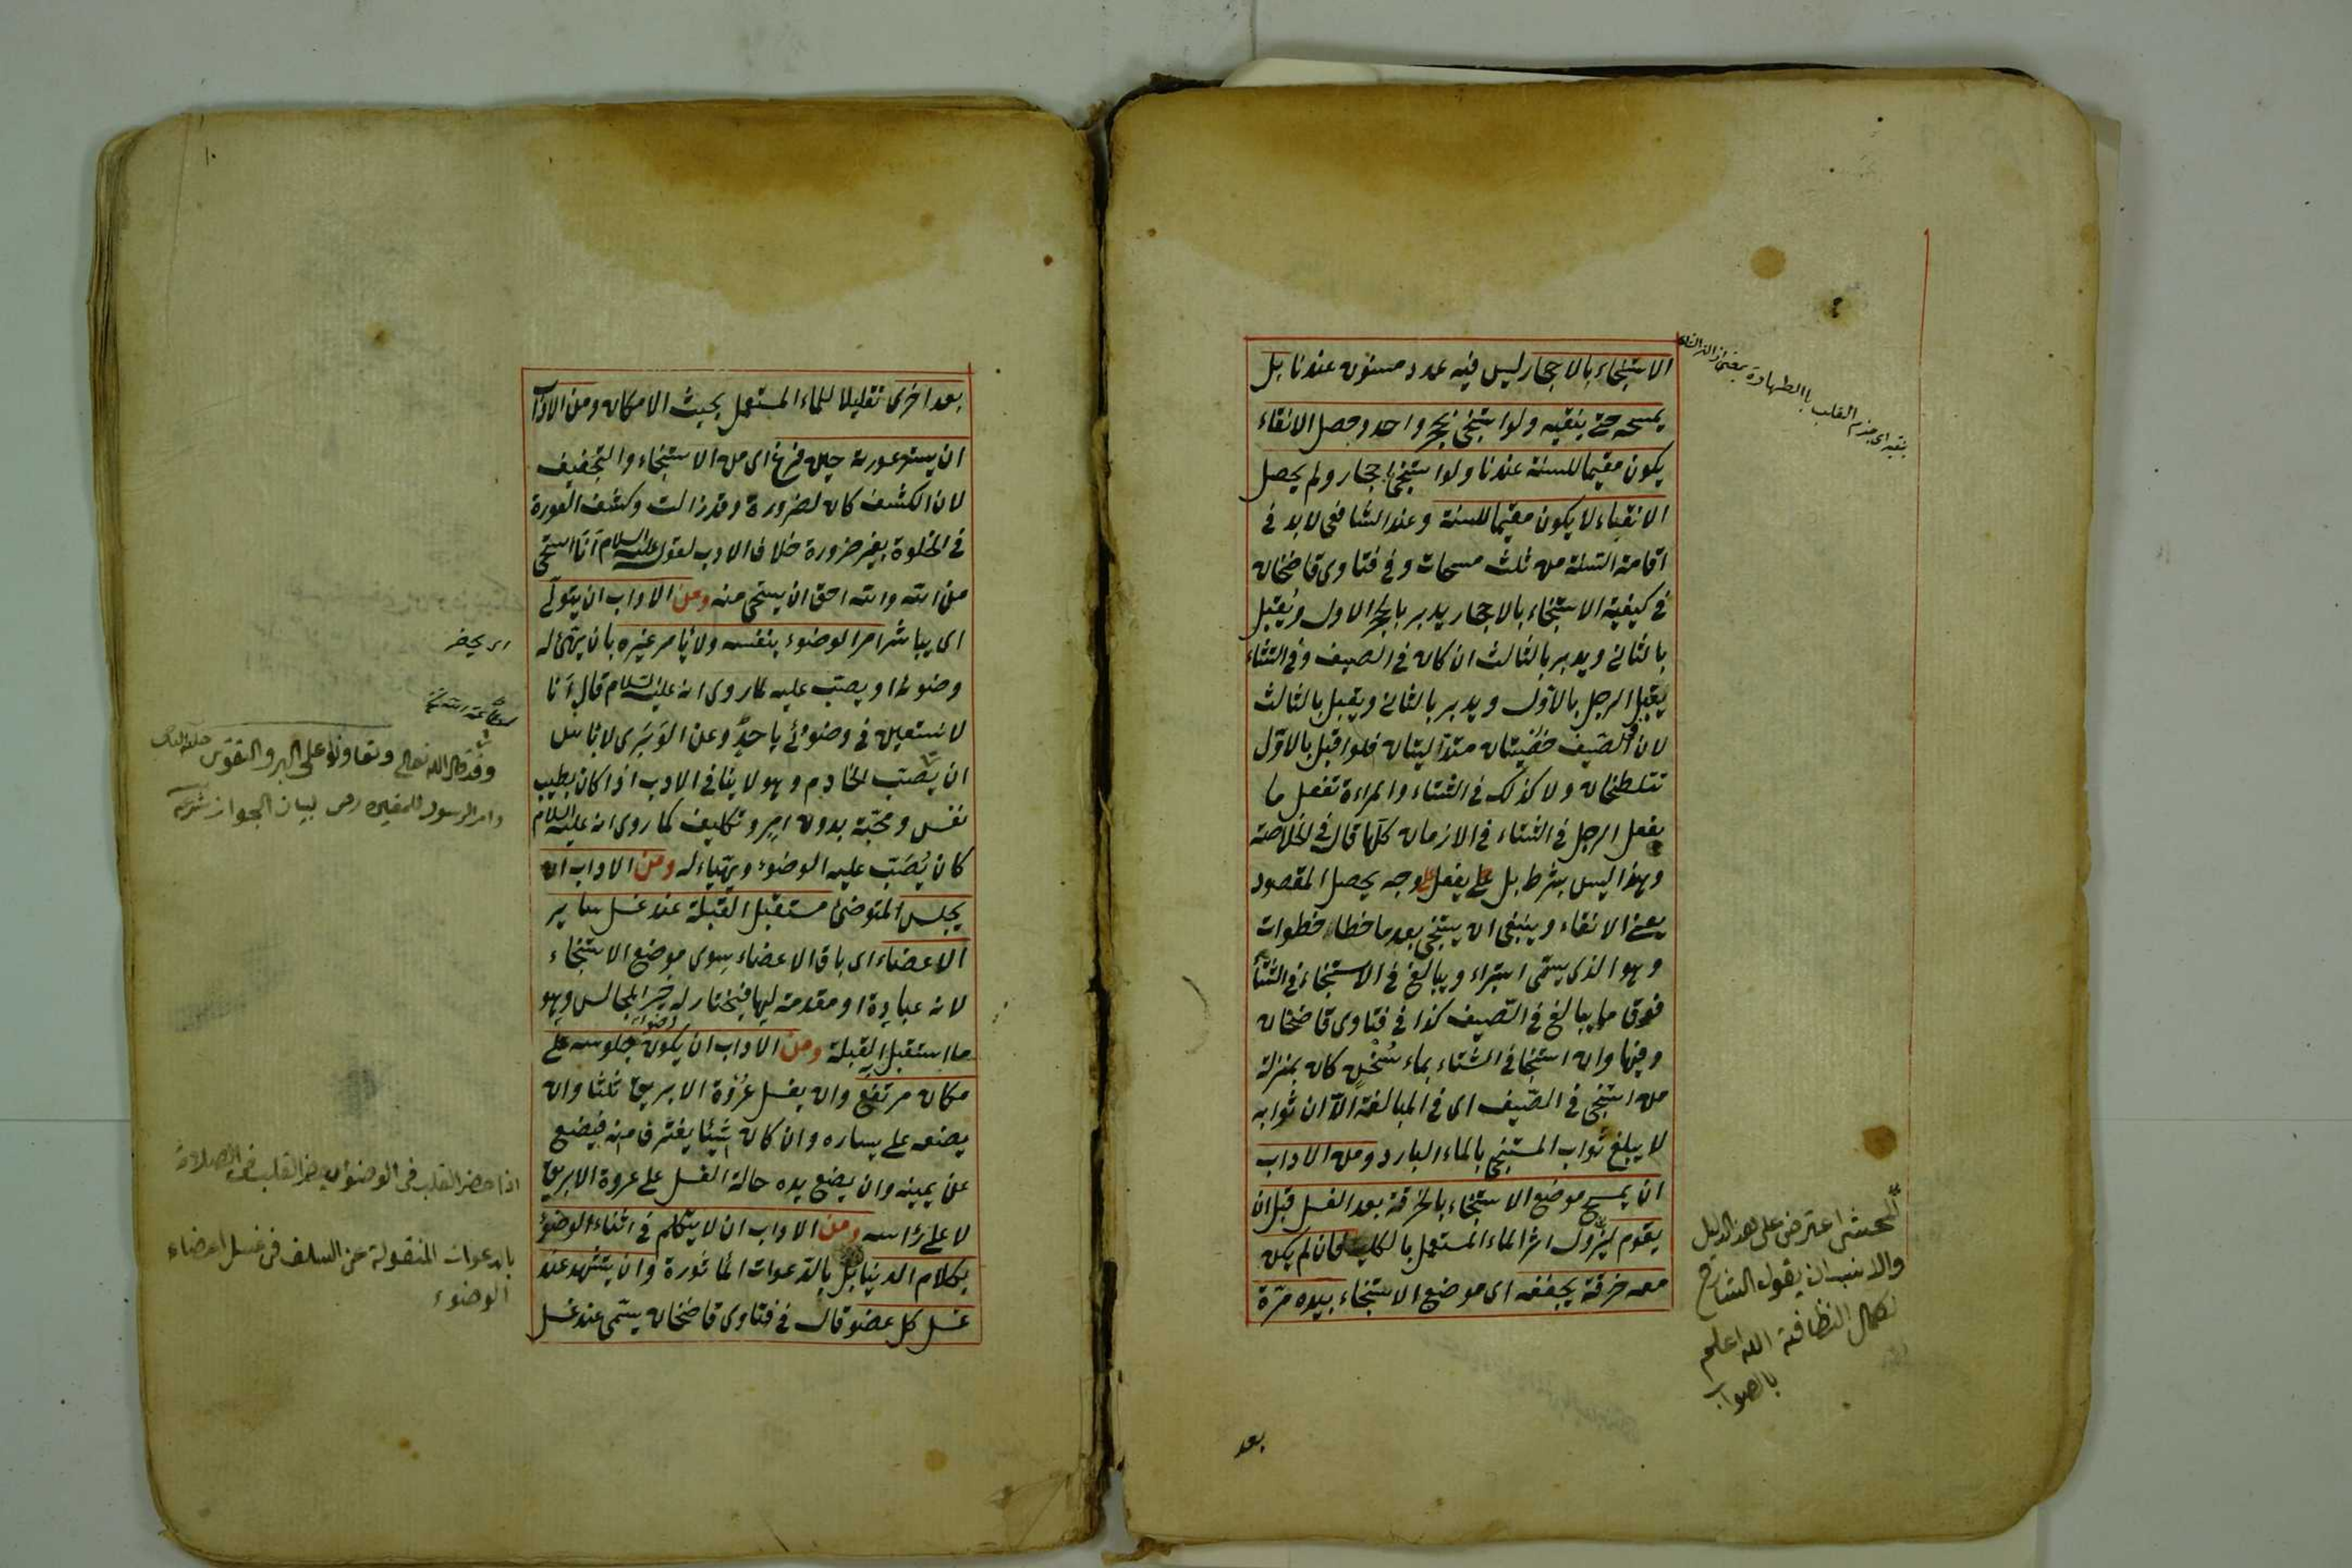 الاستنجاء بالاحجار ليس فيه عدد مسنون عندنا بل
يمسحه حتى ينقيه ولو استنجى بحجر واحد وحصل الانقاء
يكون مقيما للسنة عندنا ولو استنجى باحجار ولم يحصل
الانقاء لا يكون مقيما للسنة وعند الشافعى لا بد فى
اقامة السنة من ثلث مسحات وفى فتاوى قاضخان
فى كيفية الاستنجاء بالاحجار يدبر بالحجر الاول ويقبل
بالثانى ويدبر بالثالث ان كان فى الصيف وفى الشتاء
يقبل الرجل بالاول ويدبر بالثانى ويقبل بالثالث
لان فى الصيف خصيتان متدليتان فلو اقبل بالاول
تتلطخان ولا كذلك فى الشتاء والمراءة تفعل ما
يفعل الرجل فى الشتاء فى الازمان كلها قال فى الخلاصة
وهذا ليس بشرط بل يفعل على وجه يحصل المقصود
يعنى الانقاء وينبغى ان يستنجى بعد ما خطا خطوات
وهو الذى يسمى استبراء ويبالغ فى الاستنجاء فى الشتاء
فوق ما يبالغ فى الصيف كذا فى فتاوى قاضخان
وفيها وان استنجا فى الشتاء بماء سخن كان بمنزلة
من استنجى فى الصيف اى فى المبالغة الا ان ثوابه
لا يبلغ ثواب المستنجى بالماء البارد ومن الاداب
ان يمسح موضع الاستنجاء بالخرقة بعد الغسل قبل ان
يقوم ليزول اثر الماء المستعمل بالكلية فان لم يكن
معه خرقة يجففه اى موضع الاستنجاء بيده مرة
المحشى اعترض على هذا الدليل
والانسب ان يقول الشارح
لكمال النظافة الله اعلم
بالصواب
بعد
١٠
بعد اخرى تقليلا للماء المستعمل بحيث الامكان ومن الاداب
ان يستر عورته حين فرغ اى من الاستنجاء والتجفيف
لان الكشف كان لضرورة وقد زالت وكشف العورة
فى الخلوة بغير ضرورة خلاف الادب لقوله عليه السلام انا استحى
من الله والله احق ان يستحى منه ومن الاداب ان يتولى
اى يباشر امر الوضوء بنفسه ولا يأمر غيره بان يهيئ له
وضوءا او يصب عليه لما روى انه عليه السلام قال انا
لا نستعين فى وضوئى باحد وعن الوبرى لا باس
ان يصب الخادم وهو لا ينافى الادب اذا كان بطيب
نفس ومحبة بدون امر وتكليف كما روى انه عليه السلام
كان يصب عليه الوضوء ويهياء له ومن الاداب ان
يجلس المتوضئ مستقبل القبلة عند غسل سائر
الاعضاء اى باقى الاعضاء سوى موضع الاستنجاء
لانه عبادة او مقدمة لها فيختار له خير المجالس وهو
ما استقبل القبلة ومن الاداب ان يكون جلوسه على
مكان مرتفع وان يغسل عروة الابريق ثلثا وان
يضعه على يساره وان كان شيئا يغترف منه فيضع
عن يمينه وان يضع يده حالة الغسل على عروة الابريق
لا على رأسه ومن الاداب ان لا يتكلم فى اثناء الوضوء
بكلام الدنيا بل بالدعوات المأثورة وان يتشهد عند
غسل كل عضو قال فى فتاوى قاضخان يسمى عند غسل
اى يحضر
وقد قال الله تعالى وتعاونوا على البر والتقوى
وامر الرسول للمغيرة رض لبيان الجواز
اذا حضر القلب فى الوضوء يحضر القلب فى الصلاة
بالدعوات المنقولة عن السلف فى غسل اعضاء
الوضوء